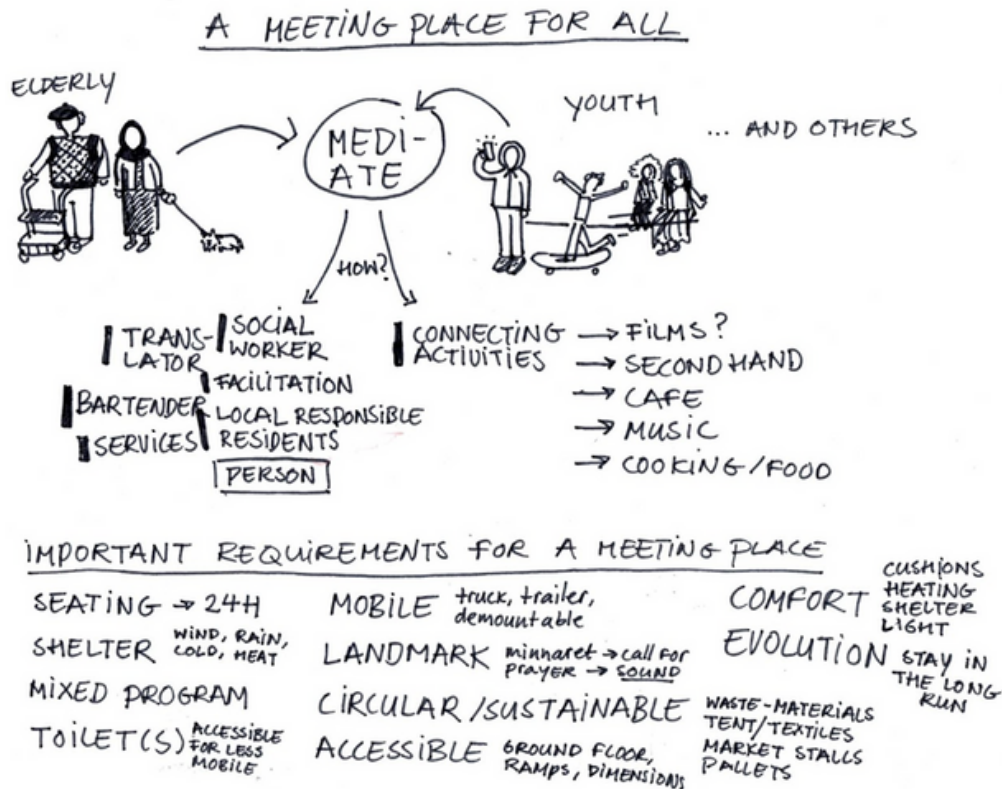 A MEETING PLACE FOR ALL
ELDERLY
MEDI-
ATE
YOUTH
... AND OTHERS
HOW?
TRANS-
LATOR
SOCIAL
WORKER
FACILITATION
BARTENDER
LOCAL RESPONSIBLE
RESIDENTS
SERVICES
PERSON
CONNECTING
ACTIVITIES
→ FILMS?
→ SECOND HAND
→ CAFE
→ MUSIC
→ COOKING/FOOD
IMPORTANT REQUIREMENTS FOR A MEETING PLACE
SEATING → 24H
SHELTER WIND, RAIN,
COLD, HEAT
MIXED PROGRAM
TOILET(S) ACCESSIBLE
FOR LESS
MOBILE
MOBILE truck, trailer,
demountable
LANDMARK minnaret → call for
prayer → SOUND
CIRCULAR/SUSTAINABLE WASTE-MATERIALS
TENT/TEXTILES
MARKET STALLS
PALLETS
ACCESSIBLE GROUND FLOOR,
RAMPS, DIMENSIONS
COMFORT CUSHIONS
HEATING
SHELTER
LIGHT
EVOLUTION STAY IN
THE LONG
RUN